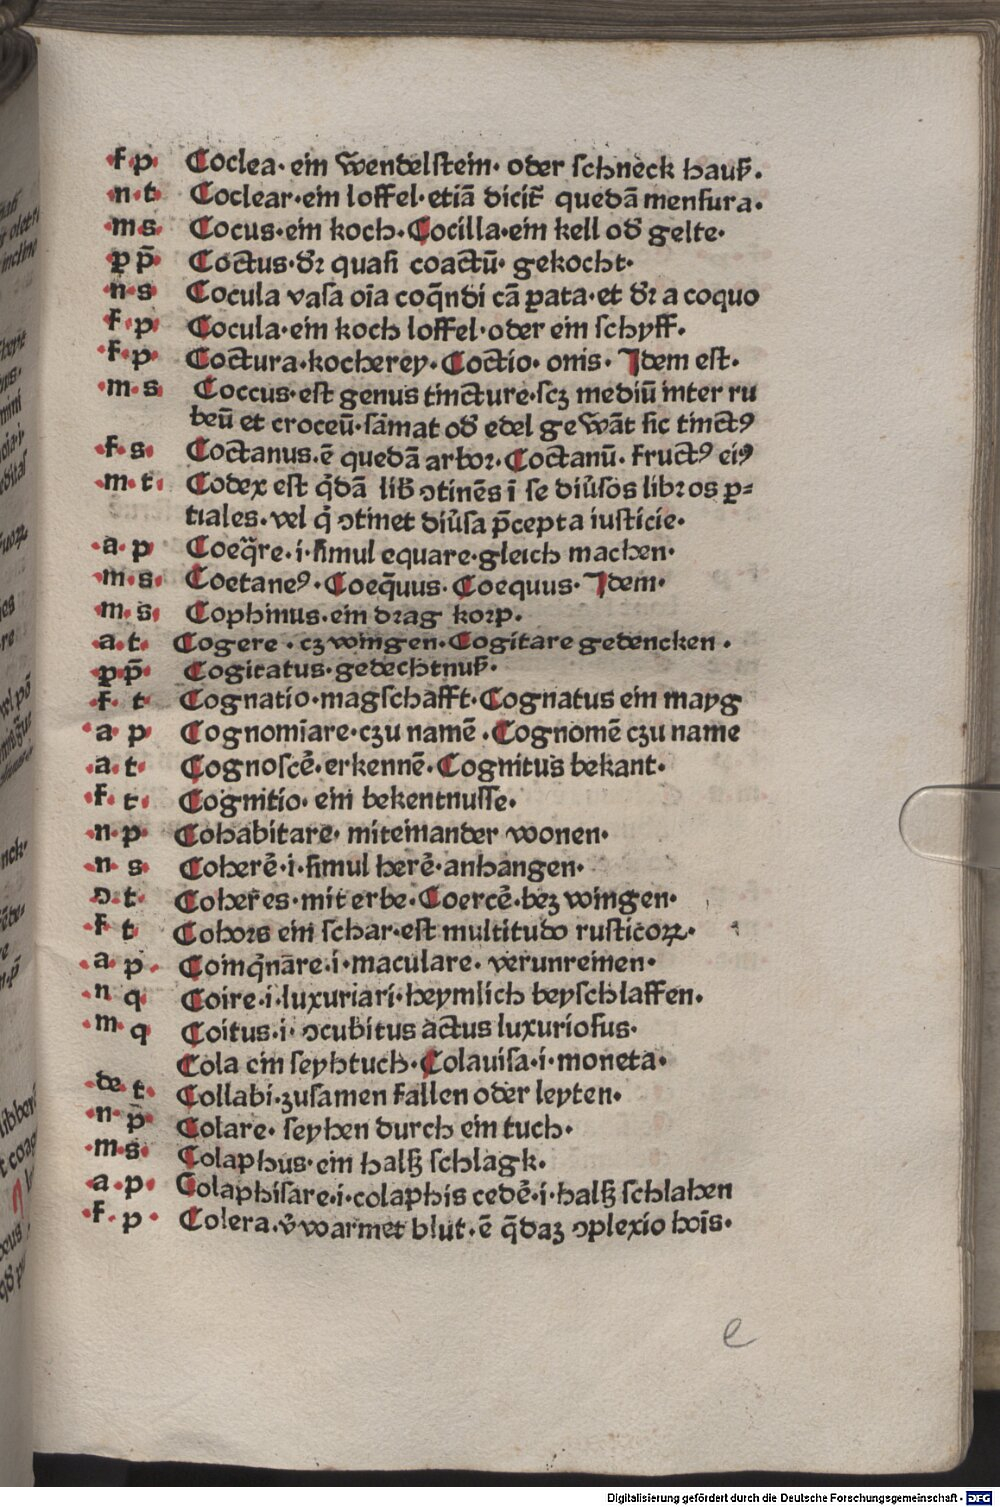 f p Coclea· ein wendelstein· oder schneck hauß.
n t Coclear·ein loffel·etiā dicit᷑ quedā mensura.
m s Cocus·ein koch·Cocilla·ein kell od̕ gelte·
p p̄ Coctus·dr̄ quasi coactū· gekocht·
n s Cocula vasa oīa coq̄ndi cā ꝑata·et dr̄ a coquo
f p Cocula·ein koch loffel·oder ein schyff·
f p Coctura·kocherey·Coctio·onis·Idem est·
m s Coccus·est genus tincture·scꝫ mediū inter ru
beū et croceū·sāmat od̕ edel gewāt sic tinctꝰ
f s Coctanus·ē quedā arbor·Coctanū·fructꝰ eiꝰ
m t Codex est q̄dā lib̕ ↄtinēs ī se diu̕sos libros ꝑ⸗
tiales·vel q̇ ↄtinet diu̕sa p̄cepta iusticie·
a p Coeq̄re·i·simul equare·gleich machen·
m s Coetaneꝰ·Coeq̄uus·Coequus·Idem·
m s Cophinus·ein drag korp.
a t Cogere·czwingen·Cogitare gedencken·
p p̄ Cogitatus·gedechtnuß·
f t Cognatio·magschafft·Cognatus ein mayg
a p Cognomīare·czu namē·Cognomē czu name
a t Cognoscē̕·erkennē·Cognitus bekant·
f t Cognitio·ein bekentnusse·
n p Cohabitare·miteinander wonen·
n s Coherē̕·i·simul herē̕·anhangen·
ↄ t Coher̄es·miterbe·Coercē̕·bezwingen·
f t Cohors ein schar·est multitudo rusticoꝝ·
a p Coinq̇nare·i·maculare·verunreinen·
n q Coire·i·luxuriari·heymlich beyschlaffen·
m q Coitus·i·ↄcubitus actus luxuriosus·
Cola ein seyhtuch·Colauisa·i·moneta·
de t Collabi·zusamen fallen oder leyten·
n p Colare·seyhen durch ein tuch·
m s Colaphus·ein halß schlagk·
a p Colaphisare·i·colaphis cedē̕·i·halß schlahen
f p Colera·v̕warmet blut·ē q̄daꝫ ↄplexio hoīs·
e
Digitalisierung gefördert durch die Deutsche Forschungsgemeinschaft - DFG